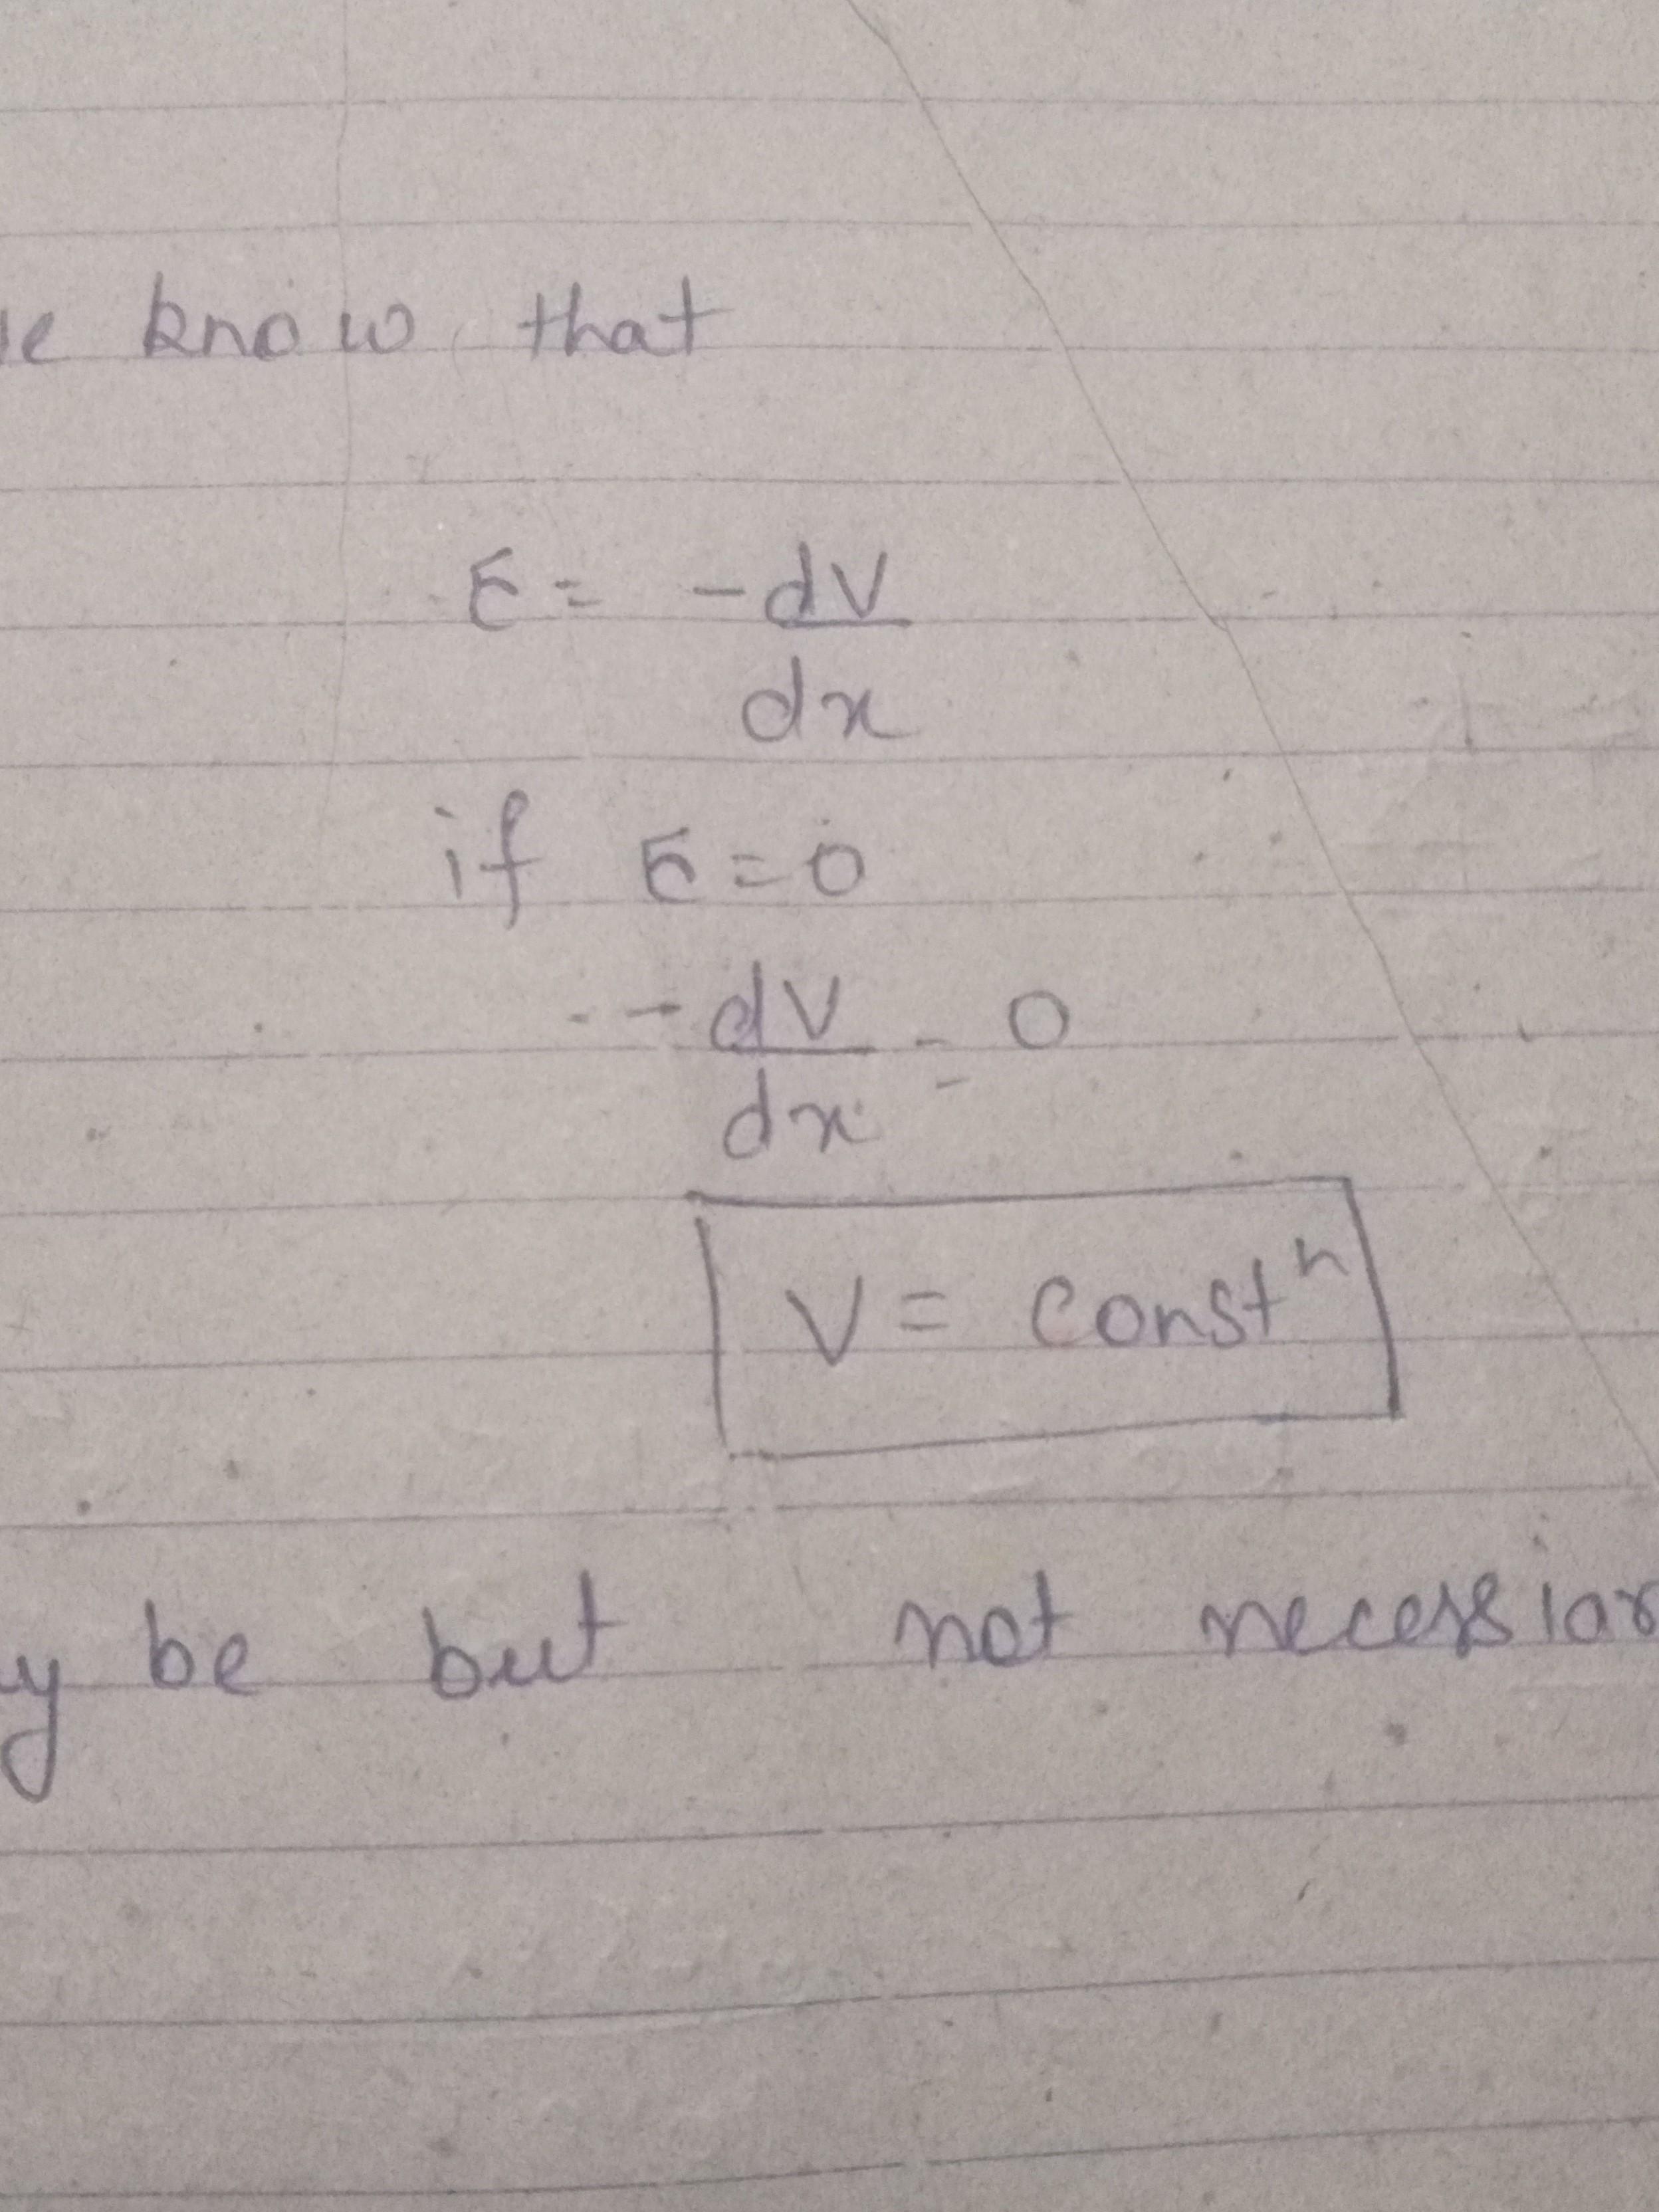 know that
E = -dV
dx
if E = 0
- - dV = 0
dx
V = const^n
y be but not necessiar